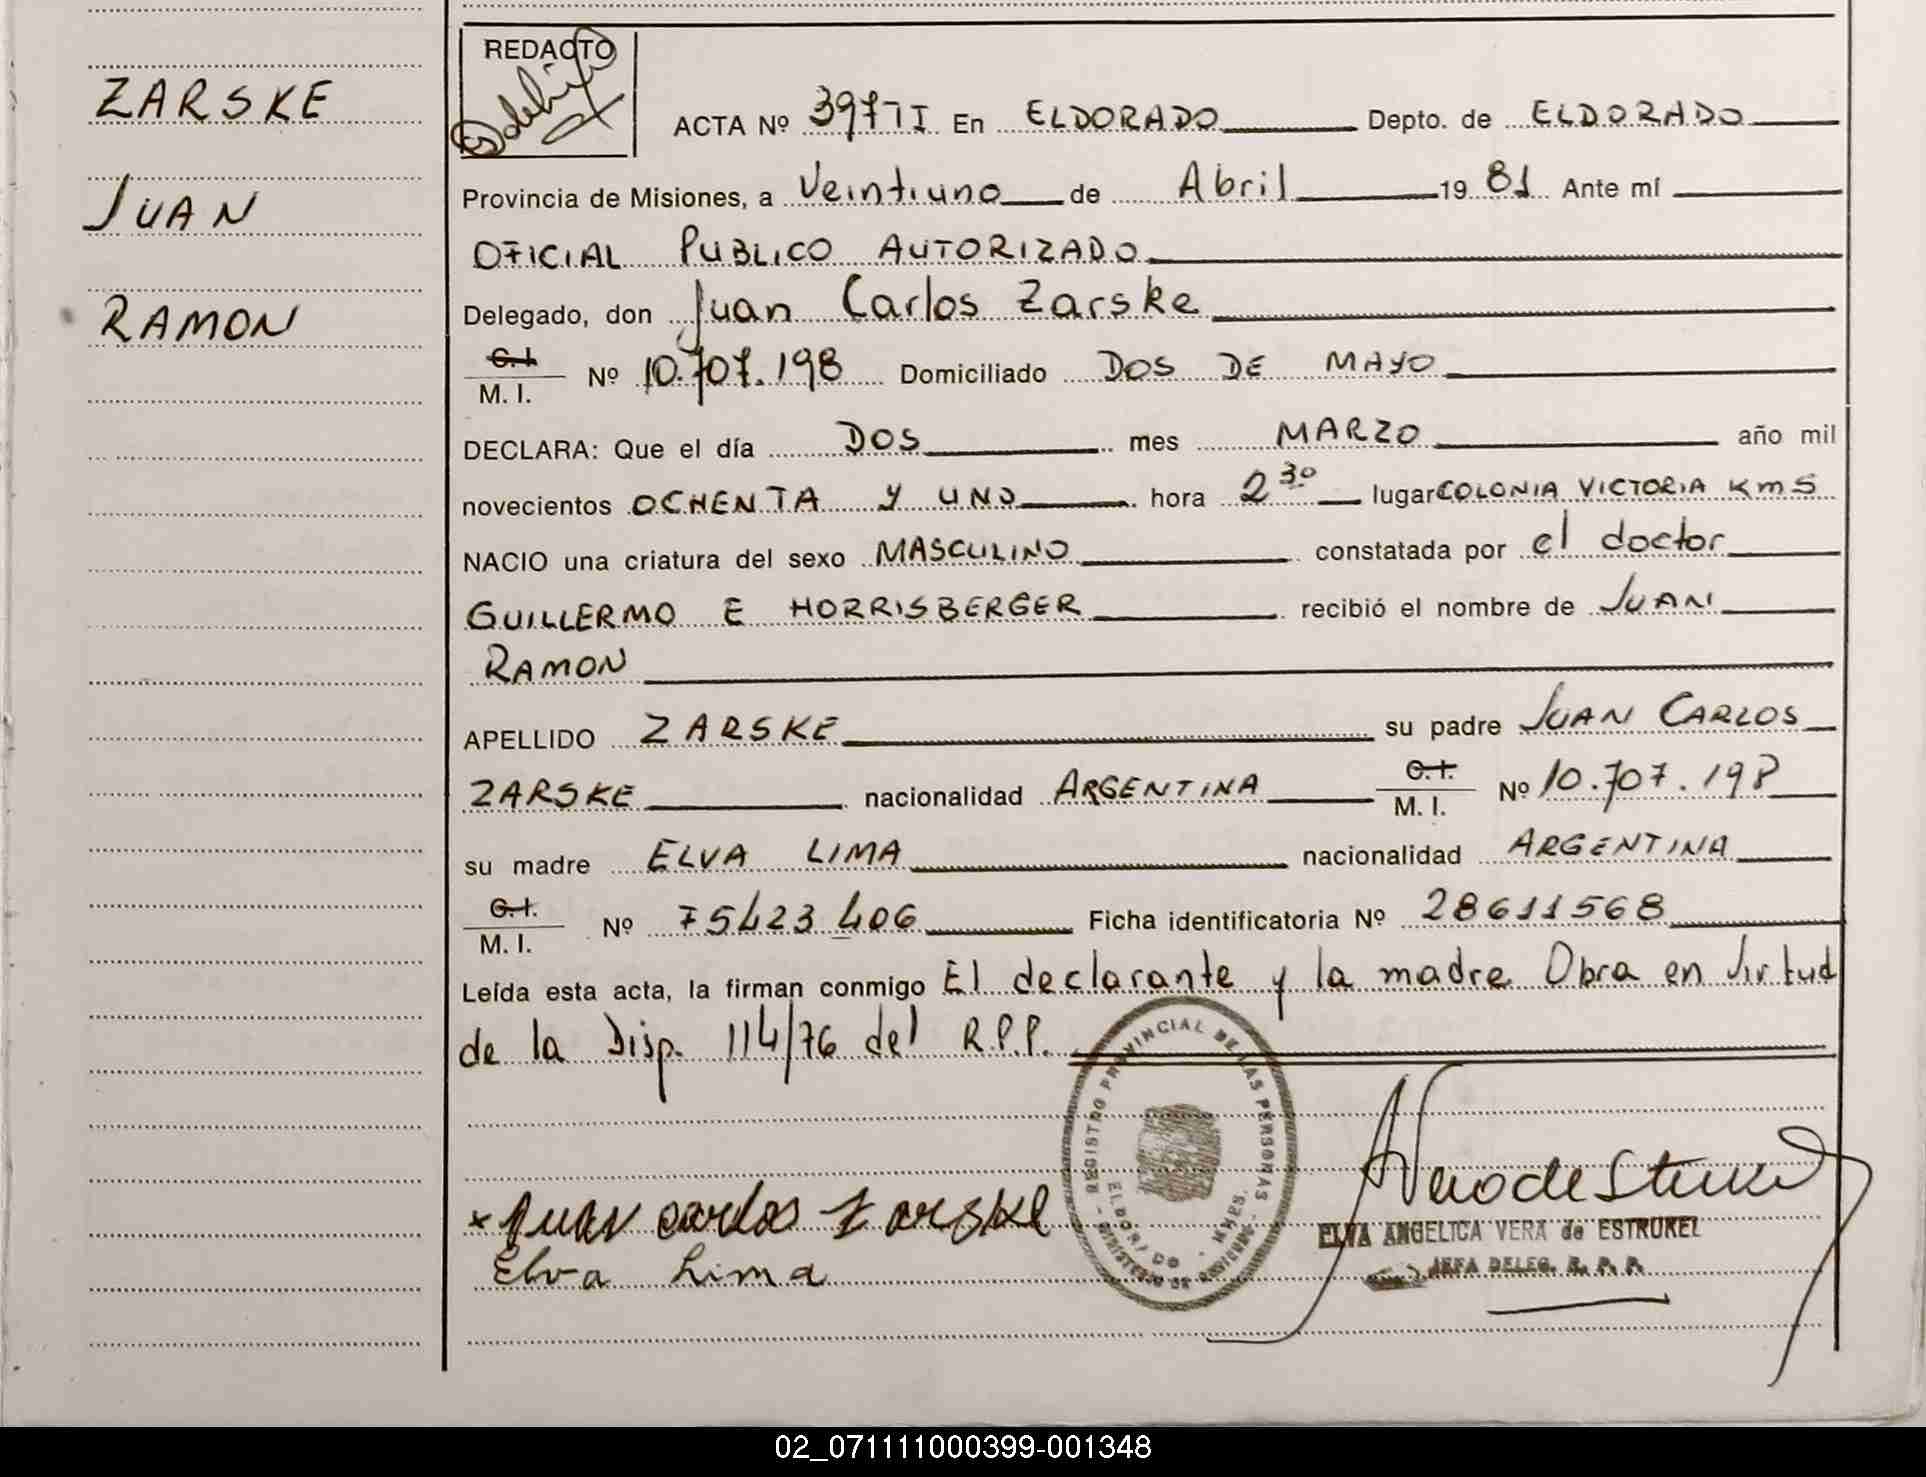 ZARSKE
JUAN
RAMON
REDACTO
ACTA Nº 3977I En ELDORADO Depto. de ELDORADO
Provincia de Misiones, a Veintiuno de Abril 19 81 Ante mí
OFICIAL PUBLICO AUTORIZADO
Delegado, don Juan Carlos Zarske
C.I.
M. I. Nº 10.707.198 Domiciliado DOS DE MAYO
DECLARA: Que el día DOS mes MARZO año mil
novecientos OCHENTA Y UNO hora 2 30 lugar COLONIA VICTORIA Km 5
NACIO una criatura del sexo MASCULINO constatada por el doctor
GUILLERMO E HORRISBERGER recibió el nombre de JUAN
RAMON
APELLIDO ZARSKE su padre JUAN CARLOS
ZARSKE nacionalidad ARGENTINA C.I. M. I. Nº 10.707.198
su madre ELVA LIMA nacionalidad ARGENTINA
C.I.
M. I. Nº 75423406 Ficha identificatoria Nº 28611568
Leída esta acta, la firman conmigo El declarante y la madre Obra en Virtud
de la Disp. 114/76 del R.P.P.
REGISTRO PROVINCIAL DE LAS PERSONAS
ELDORADO - MNES.
MINISTERIO DE GOBIERNO
x Juan carlos Zarske
Elva Lima
ELVA ANGELICA VERA de ESTRUKEL
JEFA DELEG. R. P. P.
02_071111000399-001348